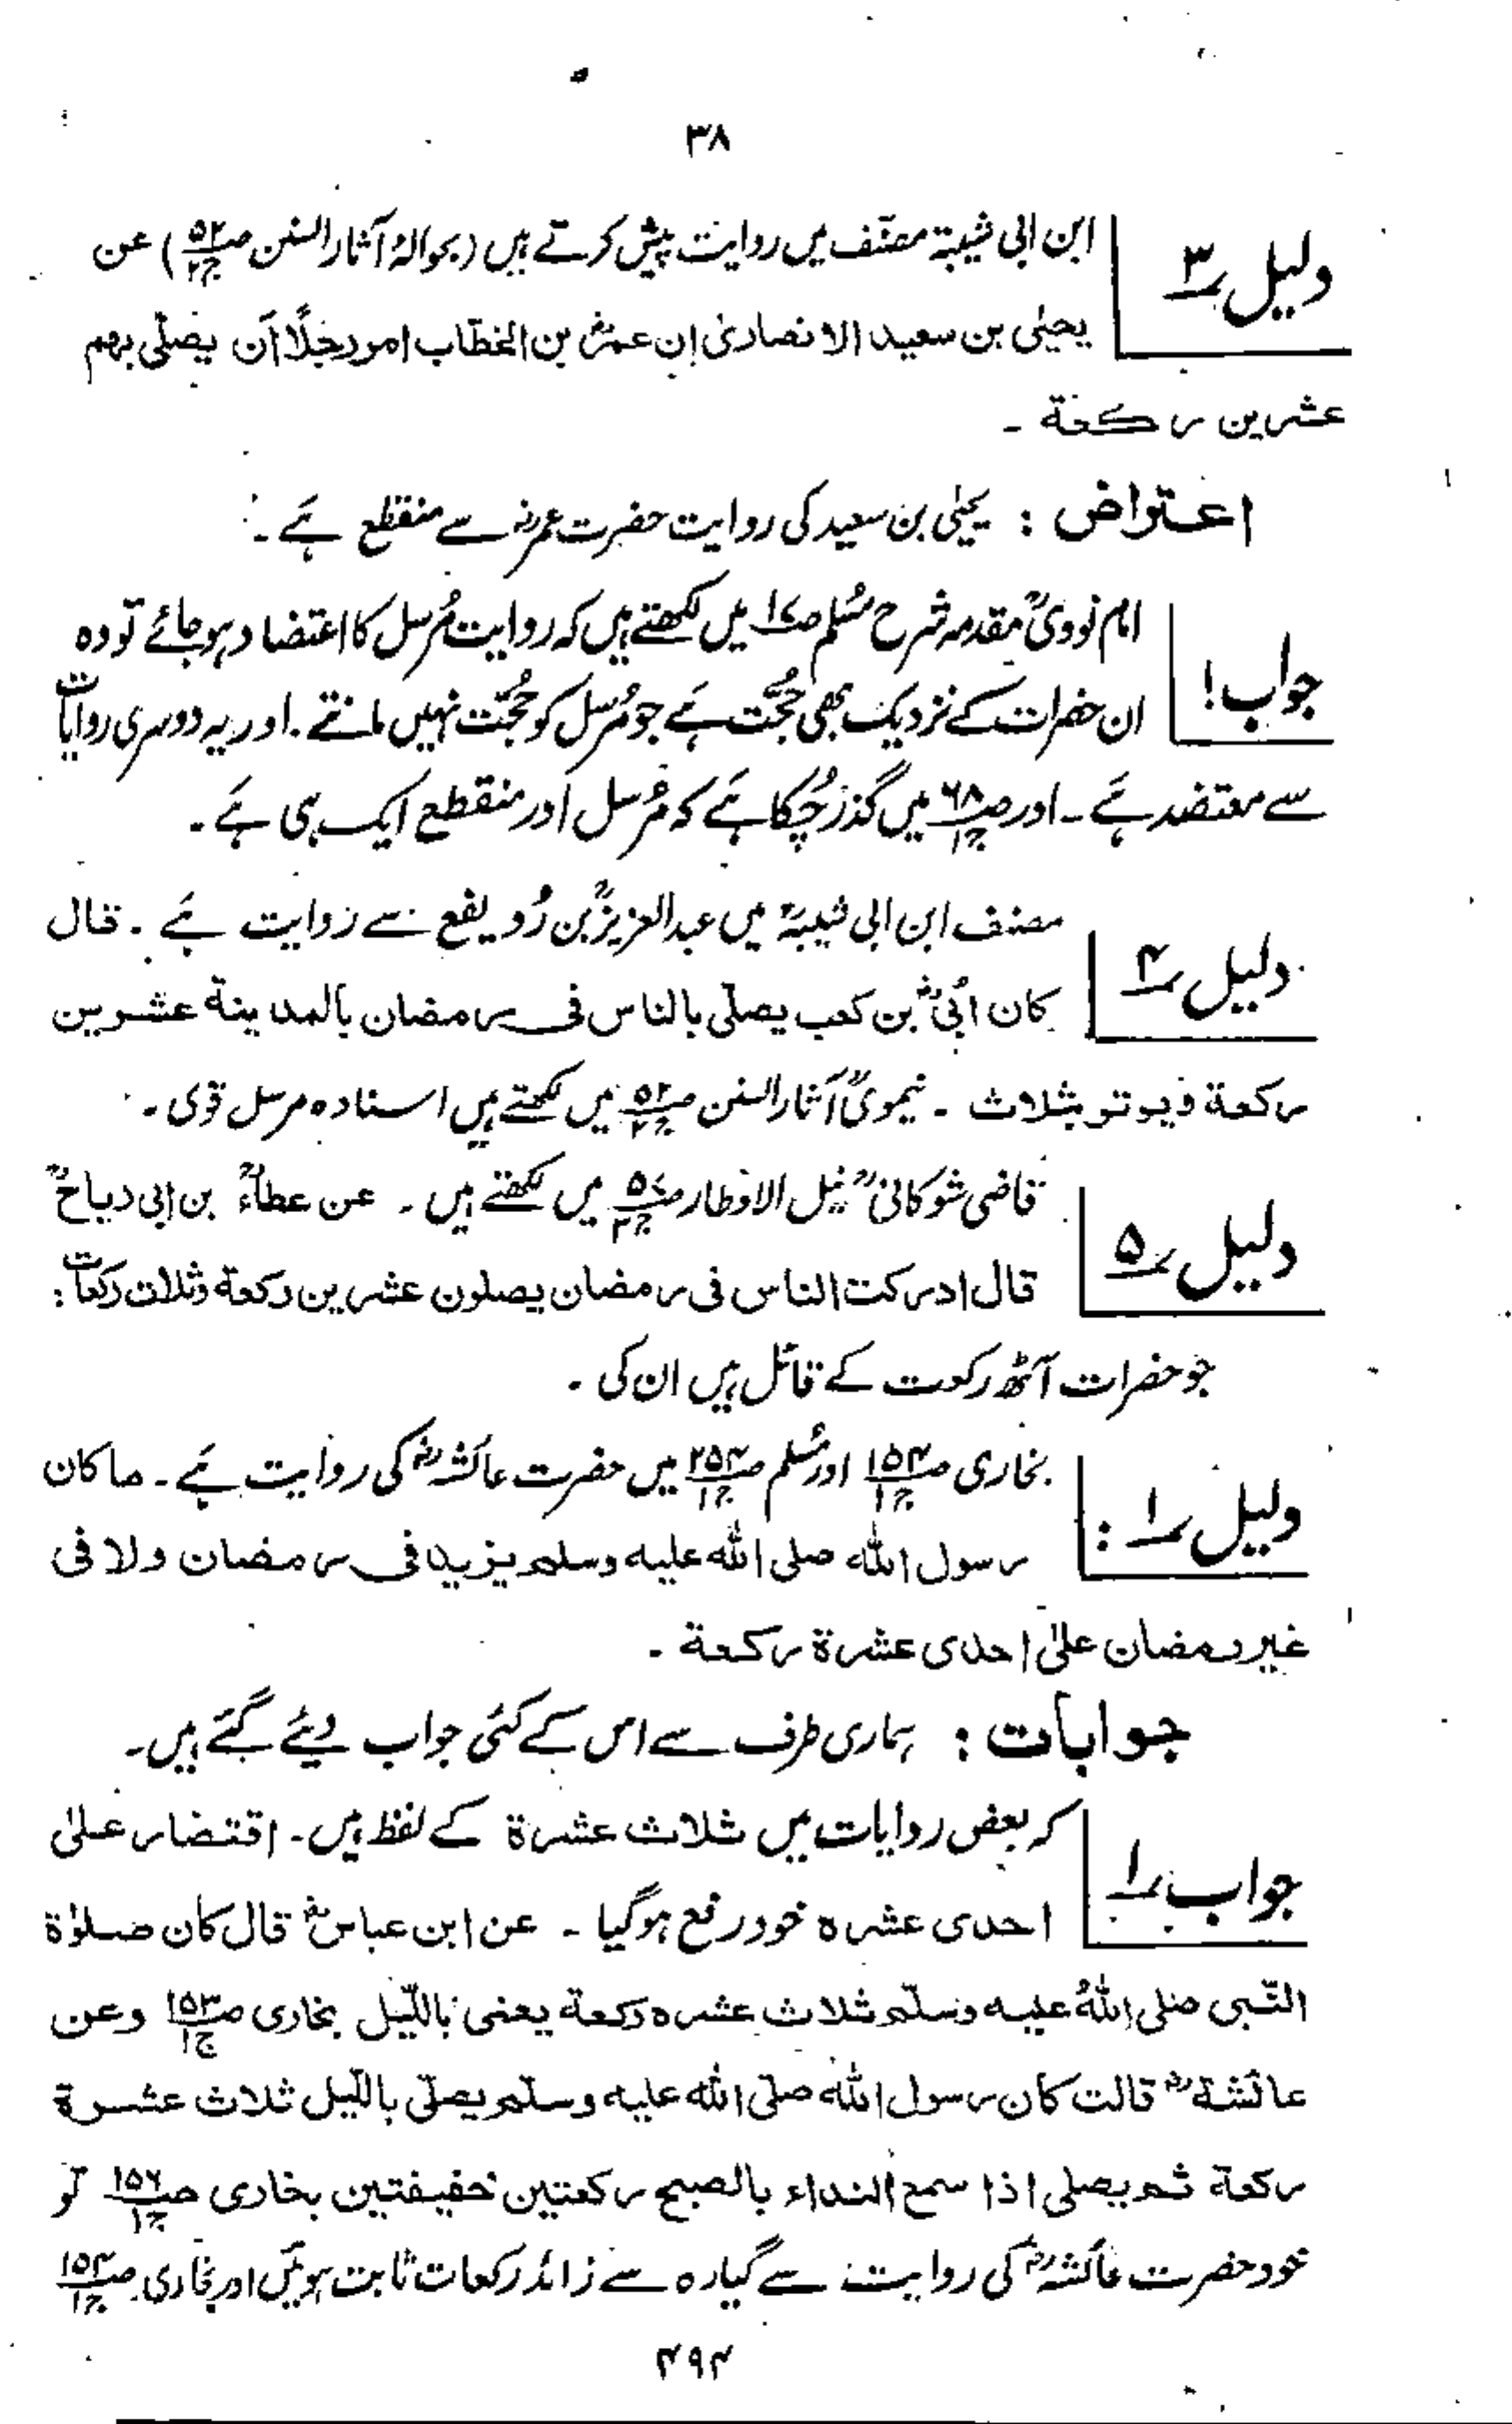 ۳۸
دلیل ۳ ابن ابی شیبۃ مصنّف میں روایت پیش کرتے ہیں (بحوالۂ آثار السنن ص۵۲ ج۲) عن
یحیٰی بن سعید الانصاریؒ ان عمرؓ بن الخطّاب امر رجلًا ان یصلّی بہم
عشرین رکعۃ ۔
اعتراض : یحیٰی بن سعید کی روایت حضرت عمرؓ سے منقطع ہے ۔
جواب! امام نوویؒ مقدمہ شرح مُسلم ص۱۷ میں لکھتے ہیں کہ روایت مُرسل کا اعتضاد ہو جائے تو وہ
ان حضرات کے نزدیک بھی حُجّت ہے جو مُرسل کو حُجّت نہیں مانتے ۔ اور یہ دوسری روایات
سے معتضد ہے ۔ اور ص۶۸ ج۱ میں گذر چُکا ہے کہ مُرسل اور منقطع ایک ہی ہے ۔
دلیل ۴ مصنف ابن ابی شیبۃ میں عبدالعزیزؒ بن رُویفع سے روایت ہے ۔ قال
کان اُبیؓ بن کعب یصلّی بالناس فی رمضان بالمدینۃ عشرین
رکعۃ ویوتر بثلاث ۔ نیمویؒ آثار السنن ص۵۲ ج۲ میں لکھتے ہیں اسنادہ مرسل قوی ۔
دلیل ۵ قاضی شوکانیؒ نیل الاوطار ص۵۷ ج۳ میں لکھتے ہیں ۔ عن عطاءؒ بن ابی رباحؒ
قال ادرکت الناس فی رمضان یصلون عشرین رکعۃ وثلاث رکعات :
جو حضرات آٹھ رکعت کے قائل ہیں ان کی ۔
دلیل ۱ : بخاری ص۱۵۴ ج۱ اور مُسلم ص۲۵۴ ج۱ میں حضرت عائشہؓ کی روایت ہے ۔ ما کان
رسول اللہ صلی اللہ علیہ وسلم یزید فی رمضان ولا فی
غیر رمضان علیٰ احدی عشرۃ رکعۃ ۔
جوابات : ہماری طرف سے اس کے کئی جواب دیئے گئے ہیں ۔
جواب ۱ کہ بعض روایات میں ثلاث عشرۃ کے لفظ ہیں ۔ اقتضار علیٰ
احدی عشرہ خود رفع ہوگیا ۔ عن ابن عباسؓ قال کان صلوٰۃ
النّبی صلی اللہُ علیہ وسلّم ثلاث عشرہ رکعۃ یعنی باللّیل بخاری ص۱۵۳ ج۱ وعن
عائشۃؓ قالت کان رسول اللہ صلّی اللہ علیہ وسلّم یصلّی باللّیل ثلاث عشرۃ
رکعۃ ثم یصلی اذا سمع النداء بالصبح رکعتین خفیفتین بخاری ص۱۵۶ ج۱ تو
خود حضرت عائشہؓ کی روایت سے گیارہ سے زائد رکعات ثابت ہوئیں اور بخاری ص۱۵۴ ج۱
۴۹۴